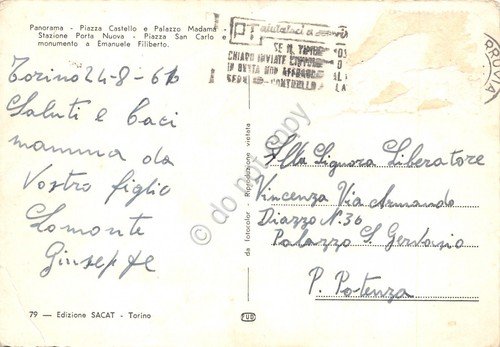 Panorama - Piazza Castello e Palazzo Madama -
Stazione Porta Nuova - Piazza San Carlo e
monumento a Emanuele Filiberto.
Torino 24-8-61
Saluti e baci
mamma da
Vostro figlio
Lomonte
Giuseppe
79 — Edizione SACAT - Torino
da fotocolor Riproduzione vietata
SE IL TIMBRO
CHIARO INVIATE
IN BUSTA NON AFFRANC
Alla Signora Liberatore
Vincenza Via Armando
Diazzo N. 36
Palazzo S. Gervasio
P. Potenza
FUB
do not copy